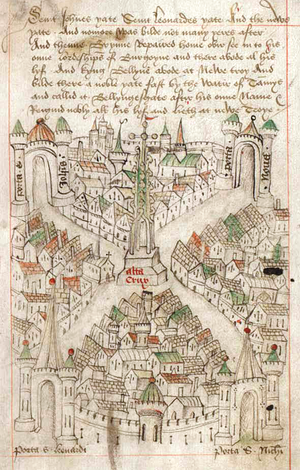 Seint Johnes yate Seint Leonardes yate And the newe
yate And nomore was bilded not many yeres after
And thenne Brynne Repaired home over see in to his
owne lordship of Burgoyne and there abode al his
lyf And kyng Bellyne abode at Newe troy And
bilde there a noble yate fast by the Water of Tamys
and called it Bellyngesgate after his owne Name &
Reigned nobly all his lyf and lieth at newe Troye
porta S.
Johīs
porta
Noua
alta
Crux
porta S. Leonardi
porta S. Nichi